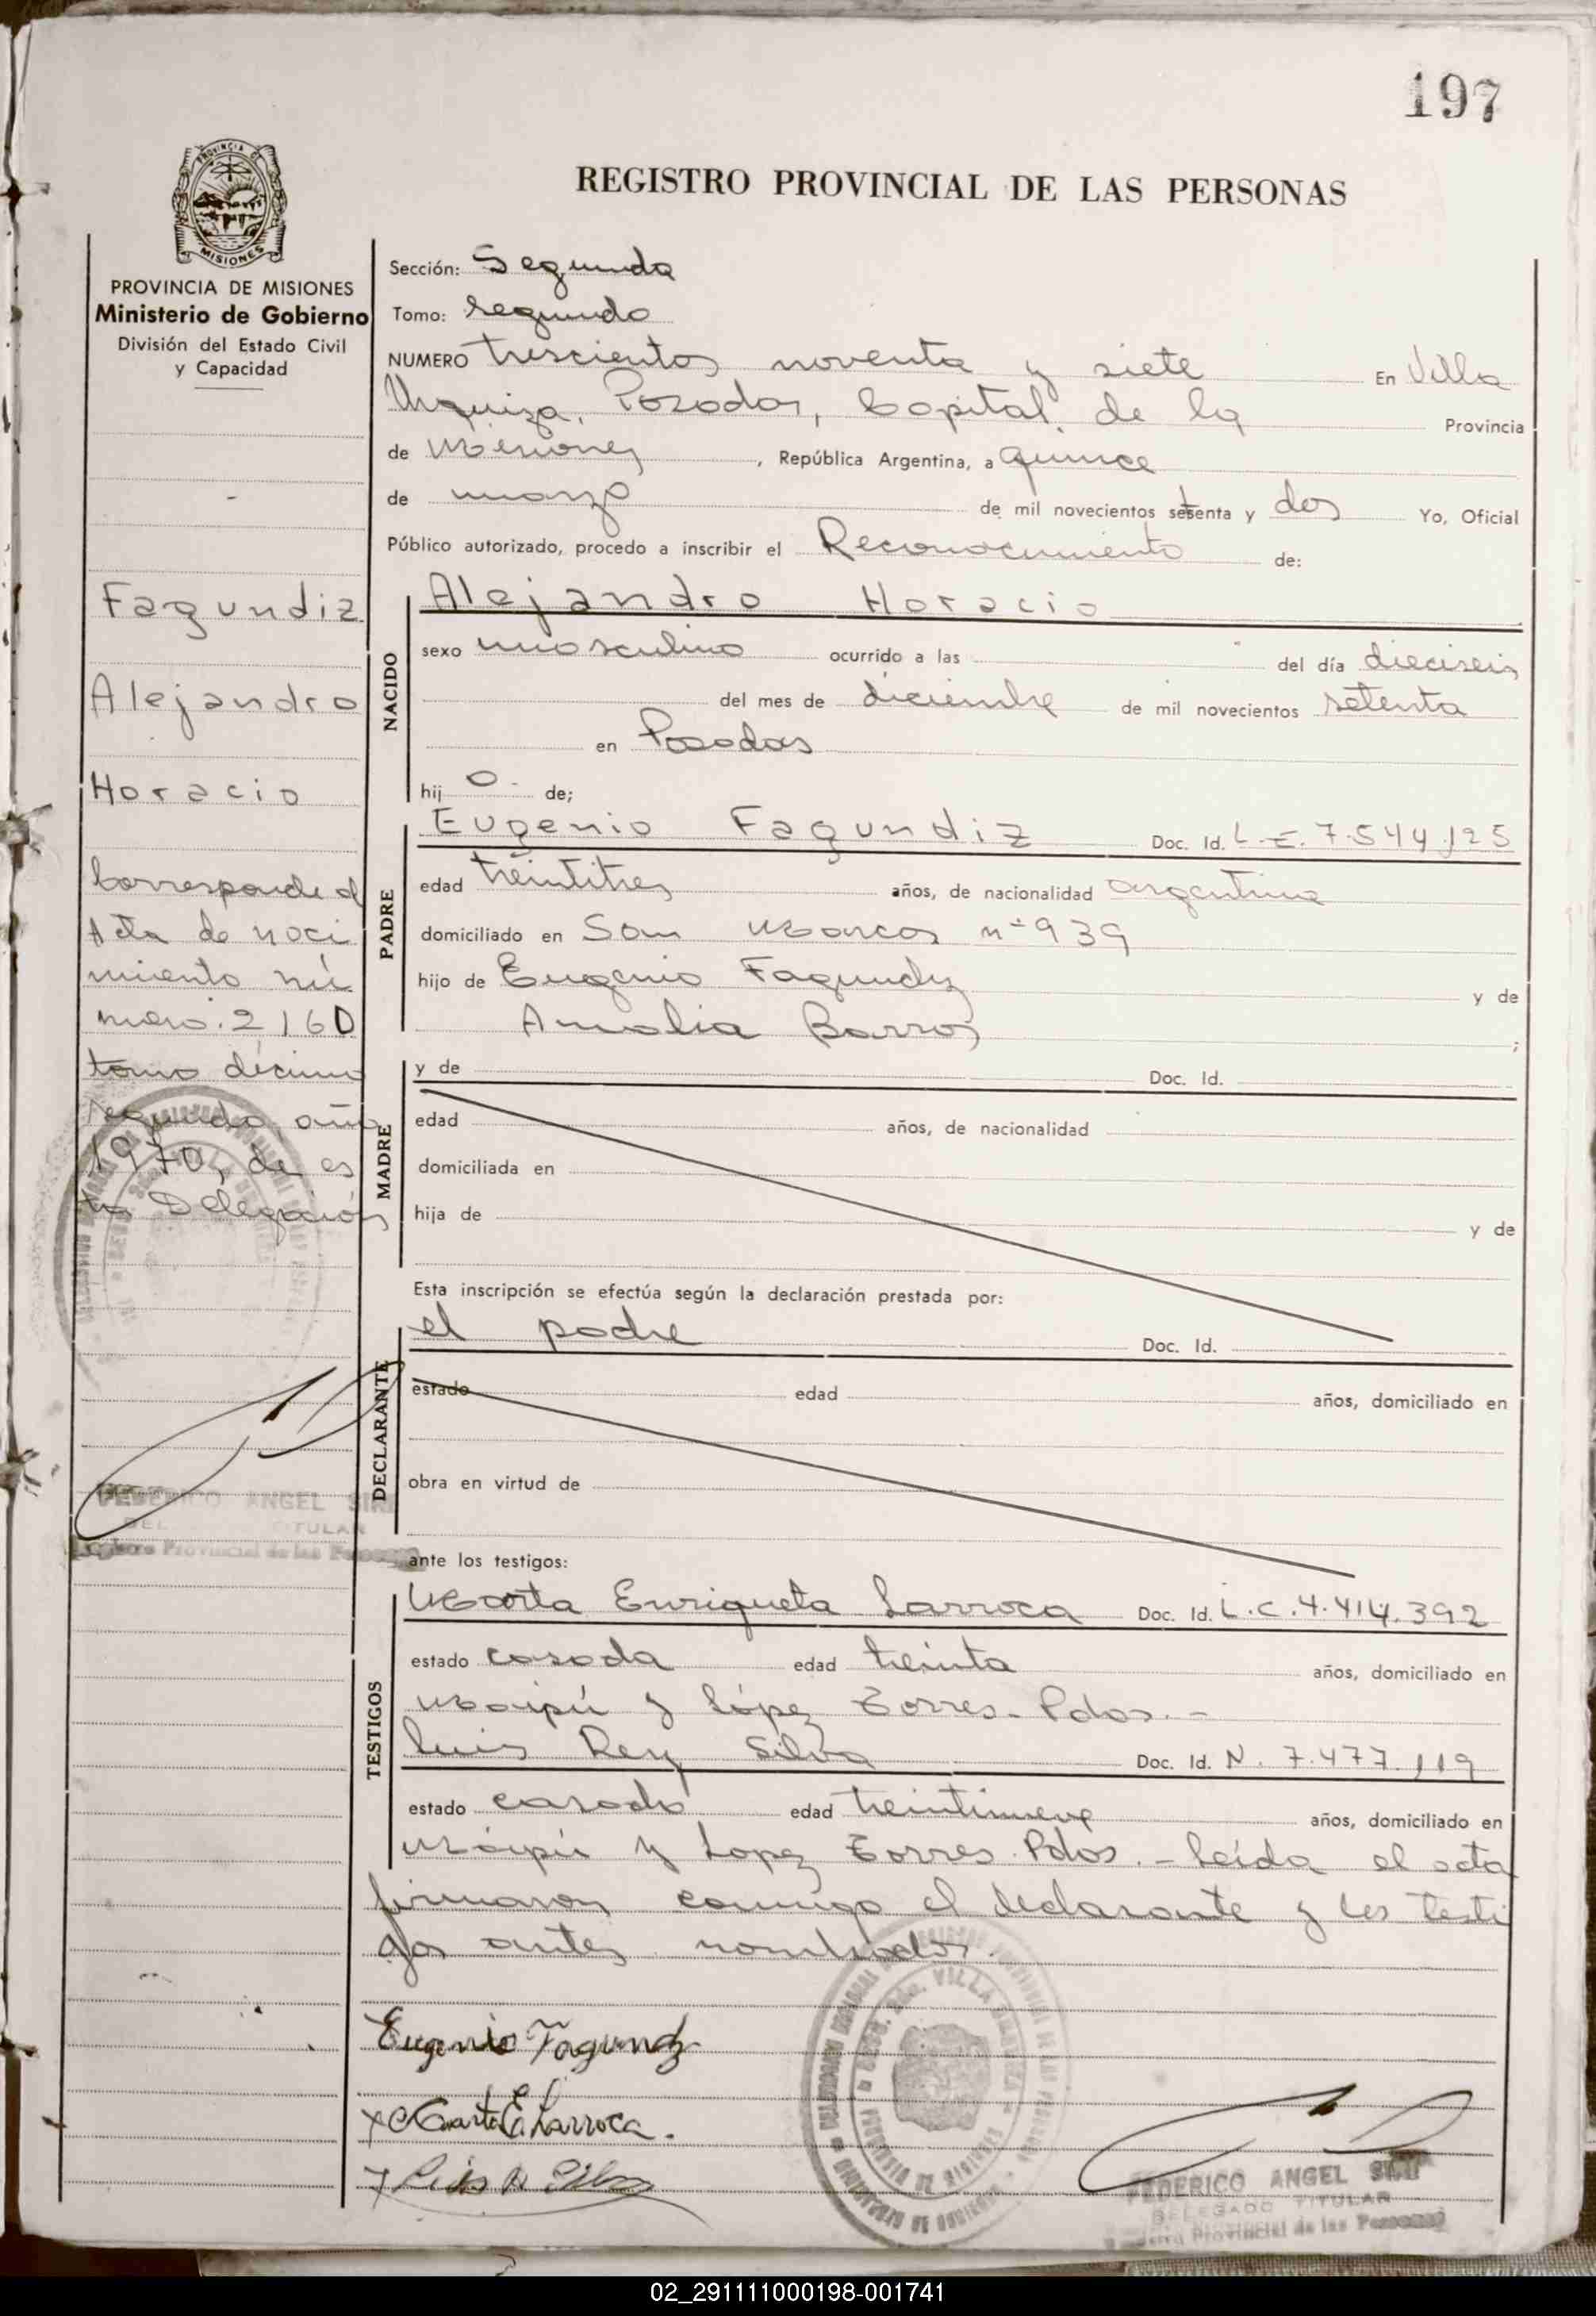 197
REGISTRO PROVINCIAL DE LAS PERSONAS
PROVINCIA DE MISIONES
Ministerio de Gobierno
División del Estado Civil
y Capacidad
Fagundiz
Alejandro
Horacio
Corresponde al
Acta de naci
miento nú
mero 2160
tomo décimo
segundo año
1970, de es
ta Delegación
FEDERICO ANGEL
TITULAR
Provincial de las
Sección: Segunda
Tomo: segundo
NUMERO trescientos noventa y siete En Villa
Urquiza, Posadas, Capital de la Provincia
de Misiones, República Argentina, a quince
de marzo de mil novecientos setenta y dos Yo, Oficial
Público autorizado, procedo a inscribir el Reconocimiento de:
Alejandro Horacio
NACIDO
sexo masculino ocurrido a las del día dieciseis
del mes de diciembre de mil novecientos setenta
en Posadas
hij o. de;
Eugenio Fagundiz Doc. Id. L.E. 7.544.125
PADRE
edad treintitres años, de nacionalidad argentina
domiciliado en San Marcos nº 939
hijo de Eugenio Fagundiz y de
Amalia Barros ;
MADRE
y de Doc. Id.
edad años, de nacionalidad
domiciliada en
hija de y de
Esta inscripción se efectúa según la declaración prestada por:
el padre Doc. Id.
DECLARANTE
estado edad años, domiciliado en
obra en virtud de
ante los testigos:
Marta Enriqueta Larroca Doc. Id. L.C. 4.414.392
TESTIGOS
estado casada edad treinta años, domiciliado en
Maipú y López Torres - Pdas. -
Luis Rey Silva Doc. Id. N. 7.477.119
estado casado edad treintinueve años, domiciliado en
Maipú y Lopez Torres Pdas. - Leída el acta
firmaron conmigo el declarante y los testi
gos antes nombrados.
Eugenio Fagundz
Marta E. Larroca.
Luis R Silva
FEDERICO ANGEL
DELEGADO TITULAR
Provincial de las Personas
02_291111000198-001741